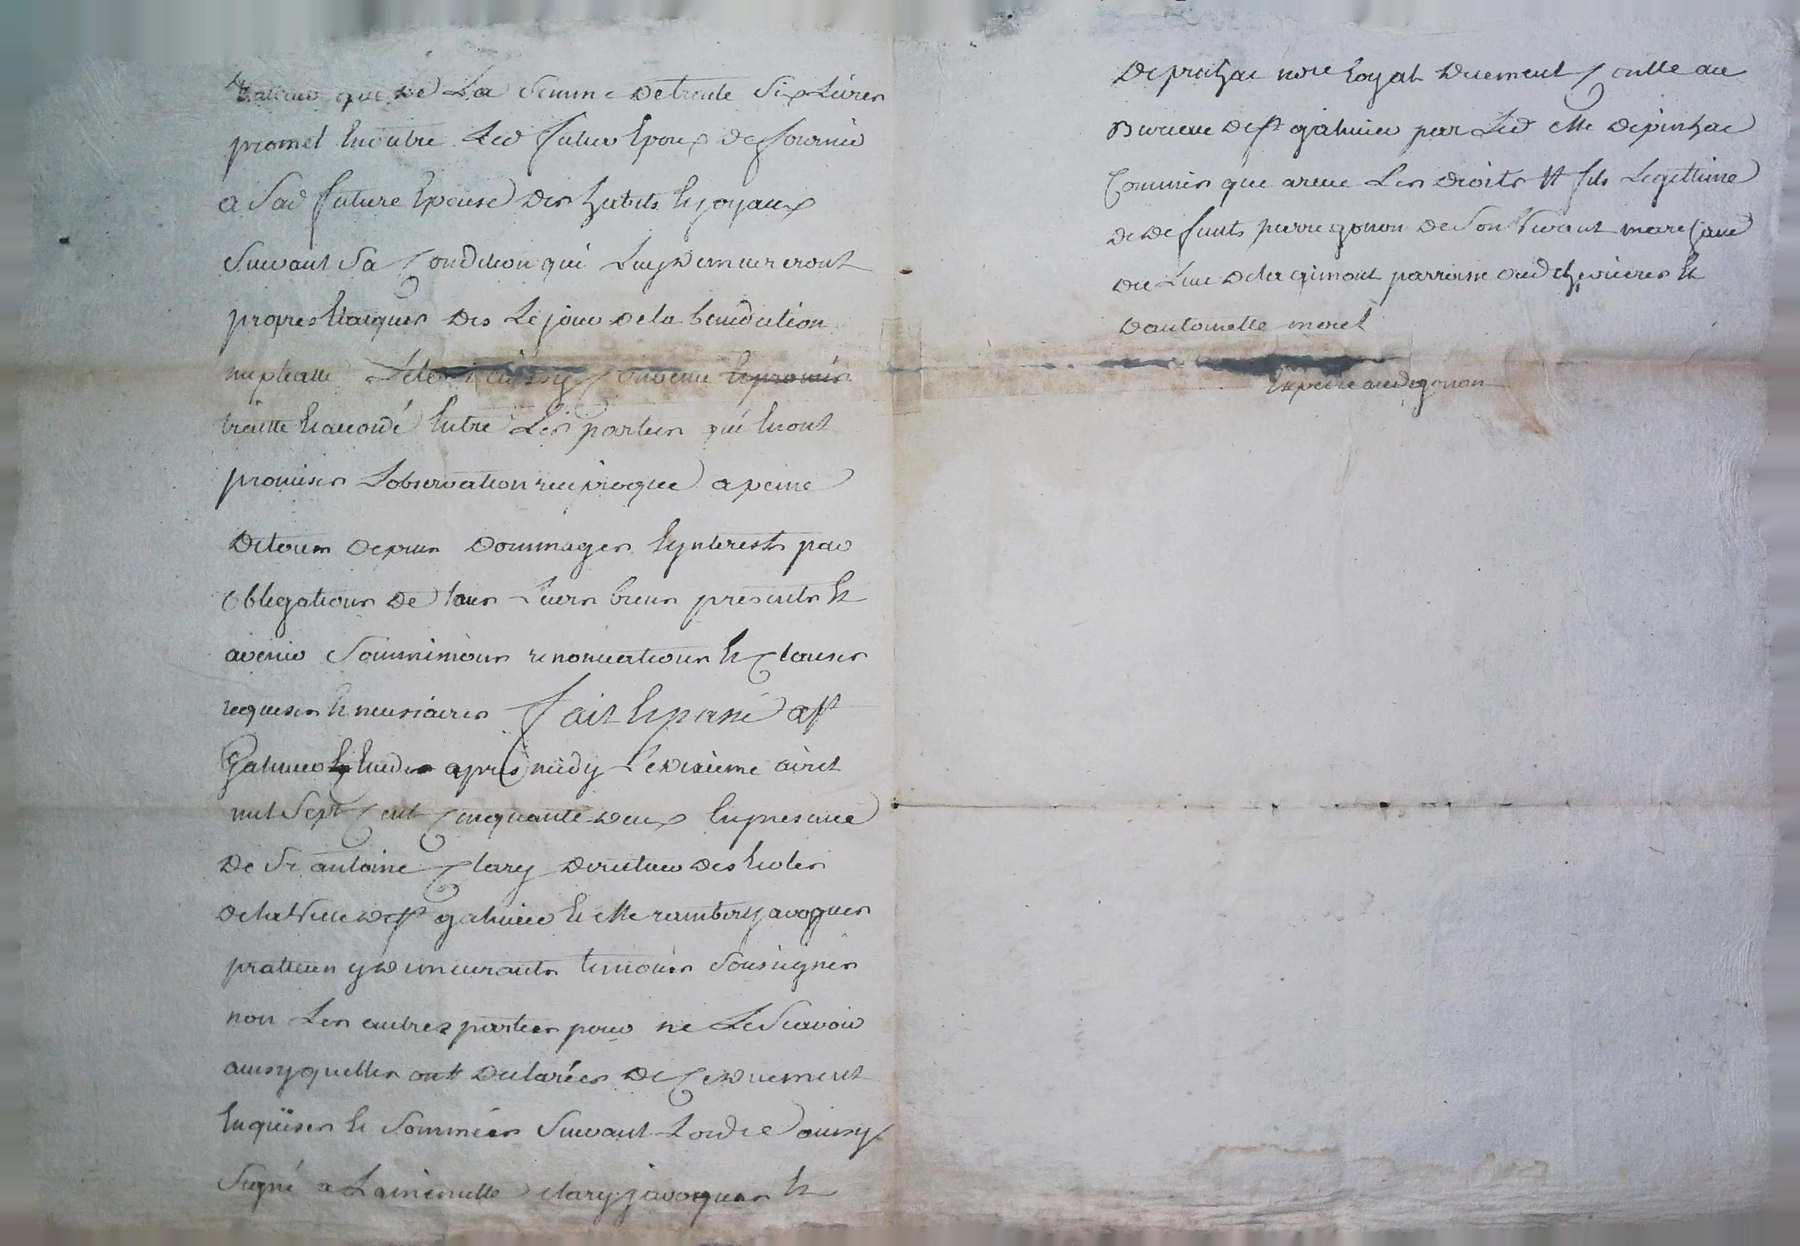 que de La Somme de trente Six Livres
promet Enoutre Led futur Epoux de fournir
a Sad future Epouse Des habits & joyaux
Suivant Sa Condition qui Luy demeureront
propres & acquis Des Le jour dela benediction
nuptialle Convenu & promis
traitté & accordé Entre Les parties qui Enont
promises L'observation reciproque a peine
De tous depens Dommages & ynterests par
obligations De tous Leurs biens presents Et
avenir Soumimions renonciations Et Clauses
requises & necessaires fait & passé a St
Galmier apres midy Le dixieme avril
mil Sept Cent Cinquante deux En presence
De Sr antoine Clary Directeur des Ecoles
De la Ville de St galmier & Me rambert javogues
praticien y demeurants temoins Sousignés
non Les autres parties pour ne Le Scavoir
ainsy quelles ont declarées De Ce duement
Enquises & Sommées Suivant Lordre ainsy
Signé a La minutte Clary javogues Et
De pinhac nore Royal duement Conlle au
Bureau de St galmier par Led Me depinhac
Commis que a receu Les droits Et fils Legittime
De defunts pierre gonon De Son Vivant marchand
du Lieu dela gimont parroisse dud chevrieres Et
Dantoinette morel
Expedié aud gonon